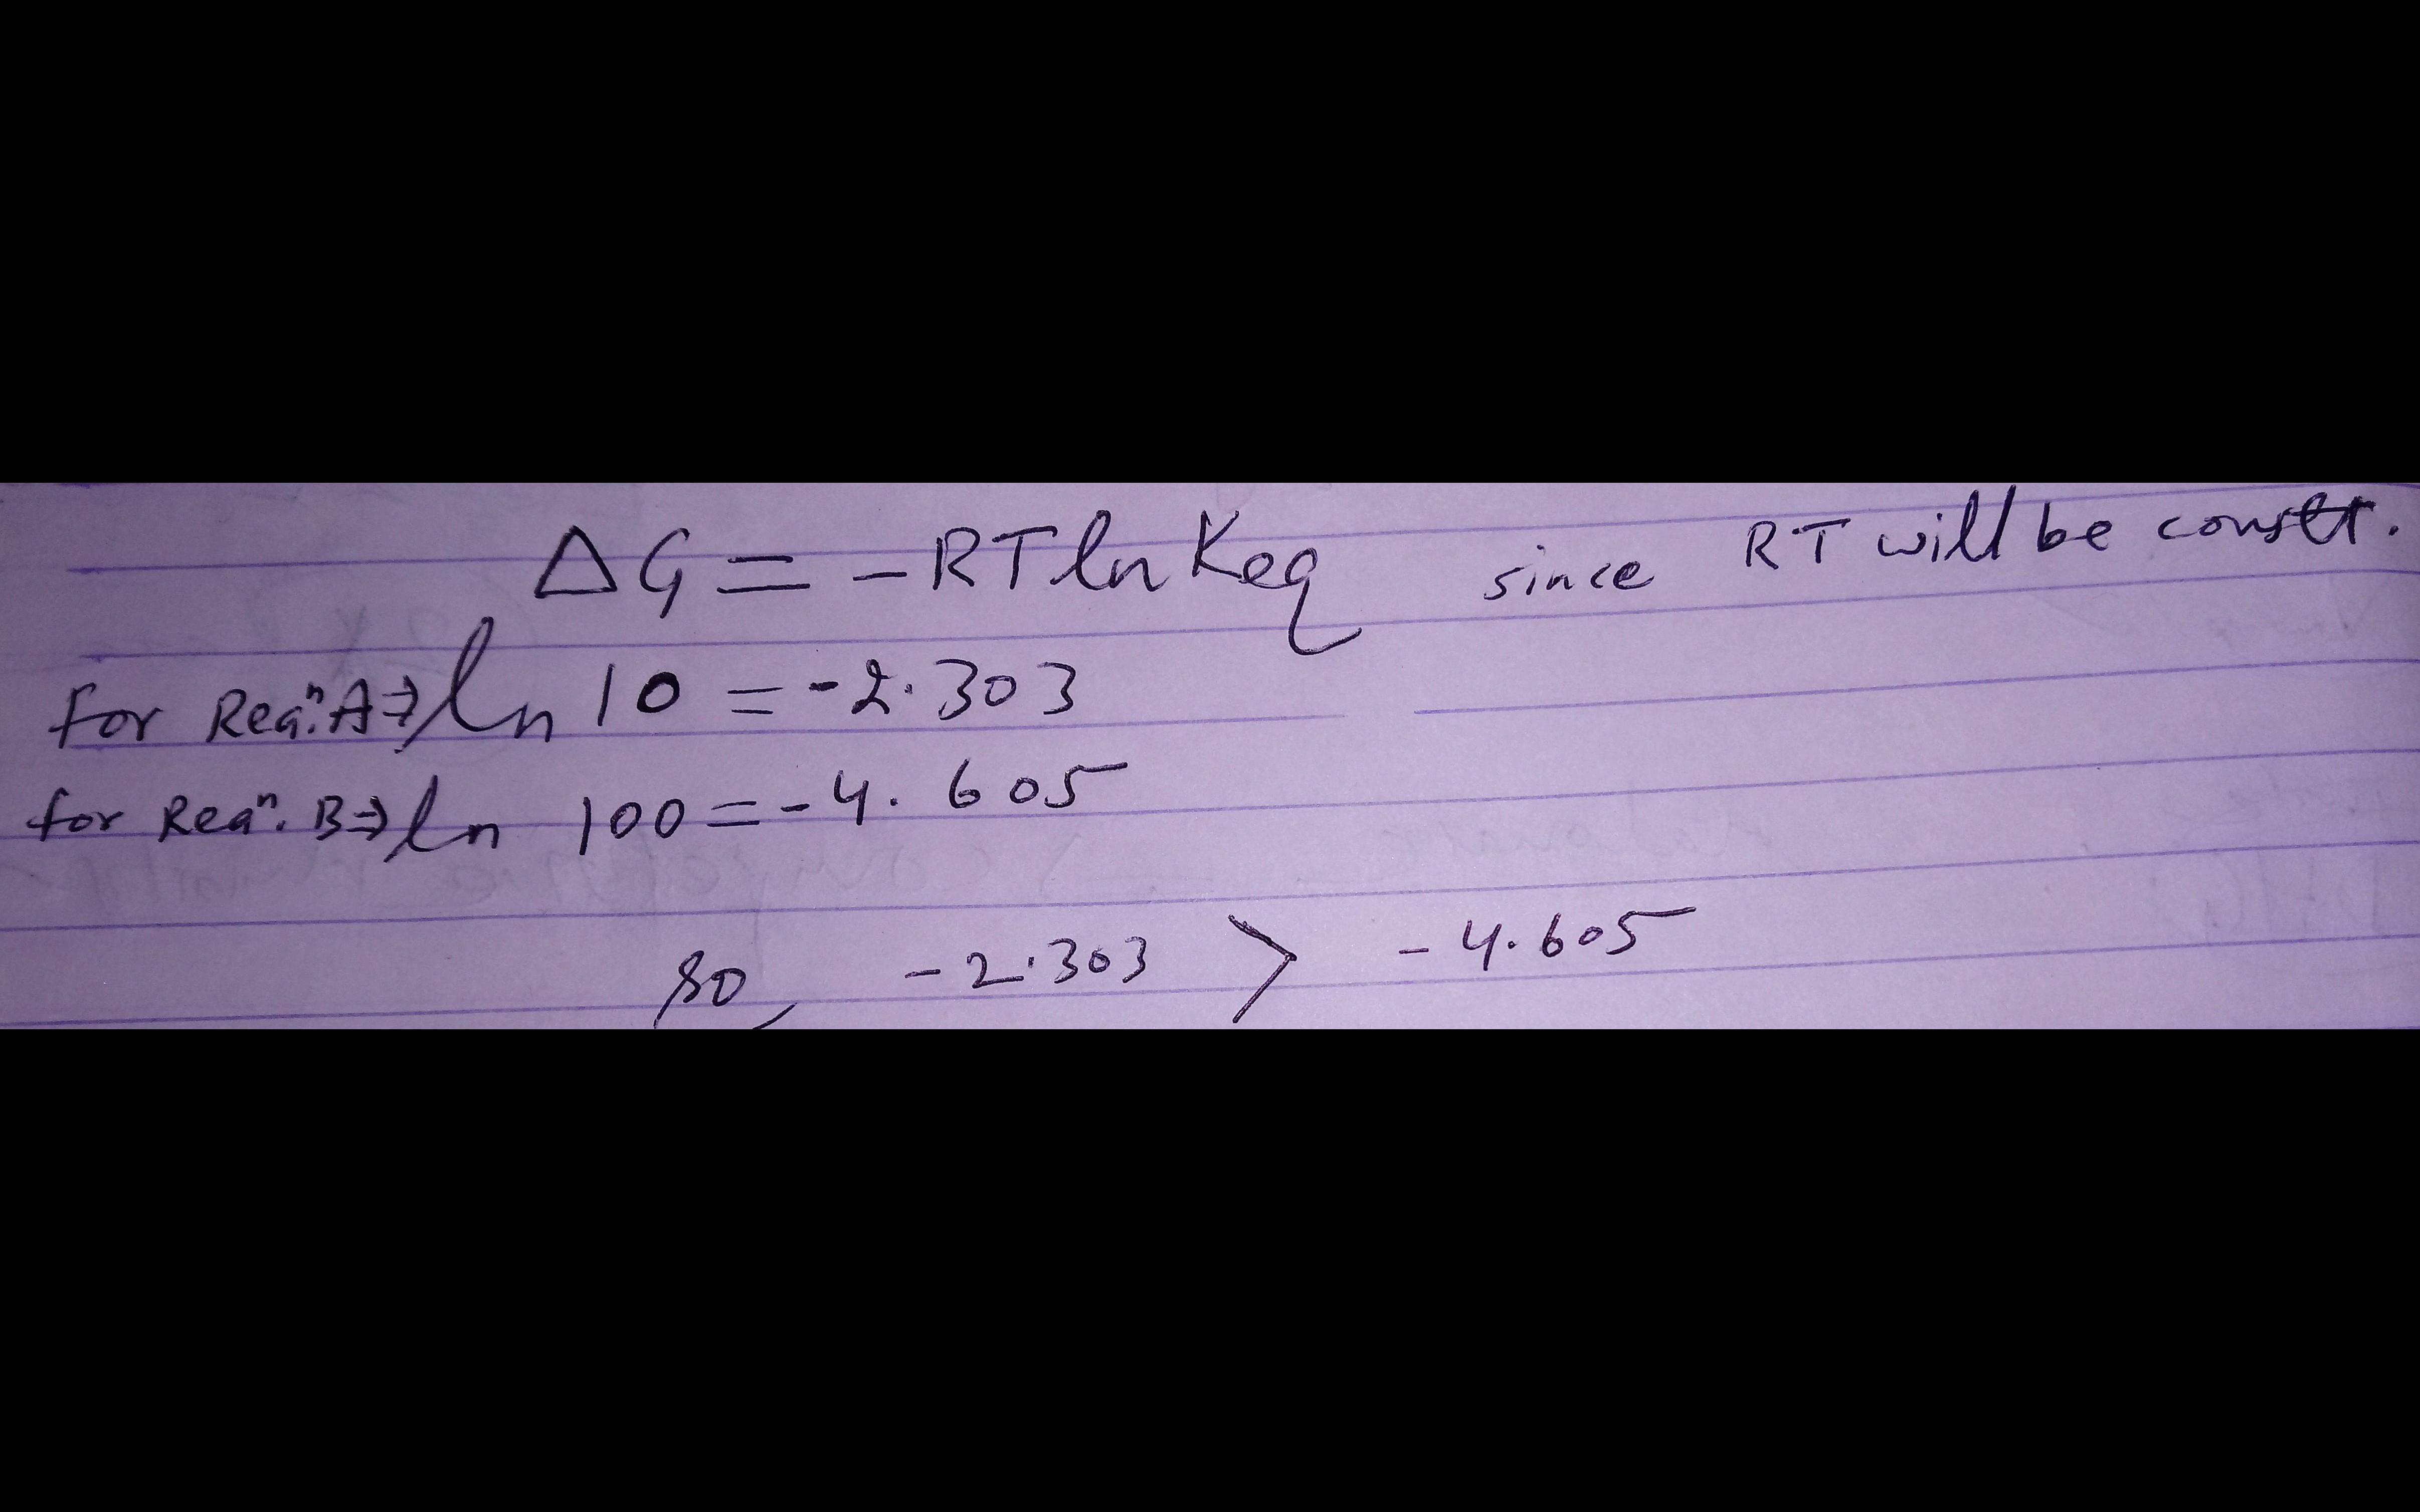 ΔG = -RT ln Keq since RT will be constt.
for Reaⁿ. A⇒ ln 10 = -2.303
for Reaⁿ. B⇒ ln 100 = -4. 605
so, -2.303 > -4.605